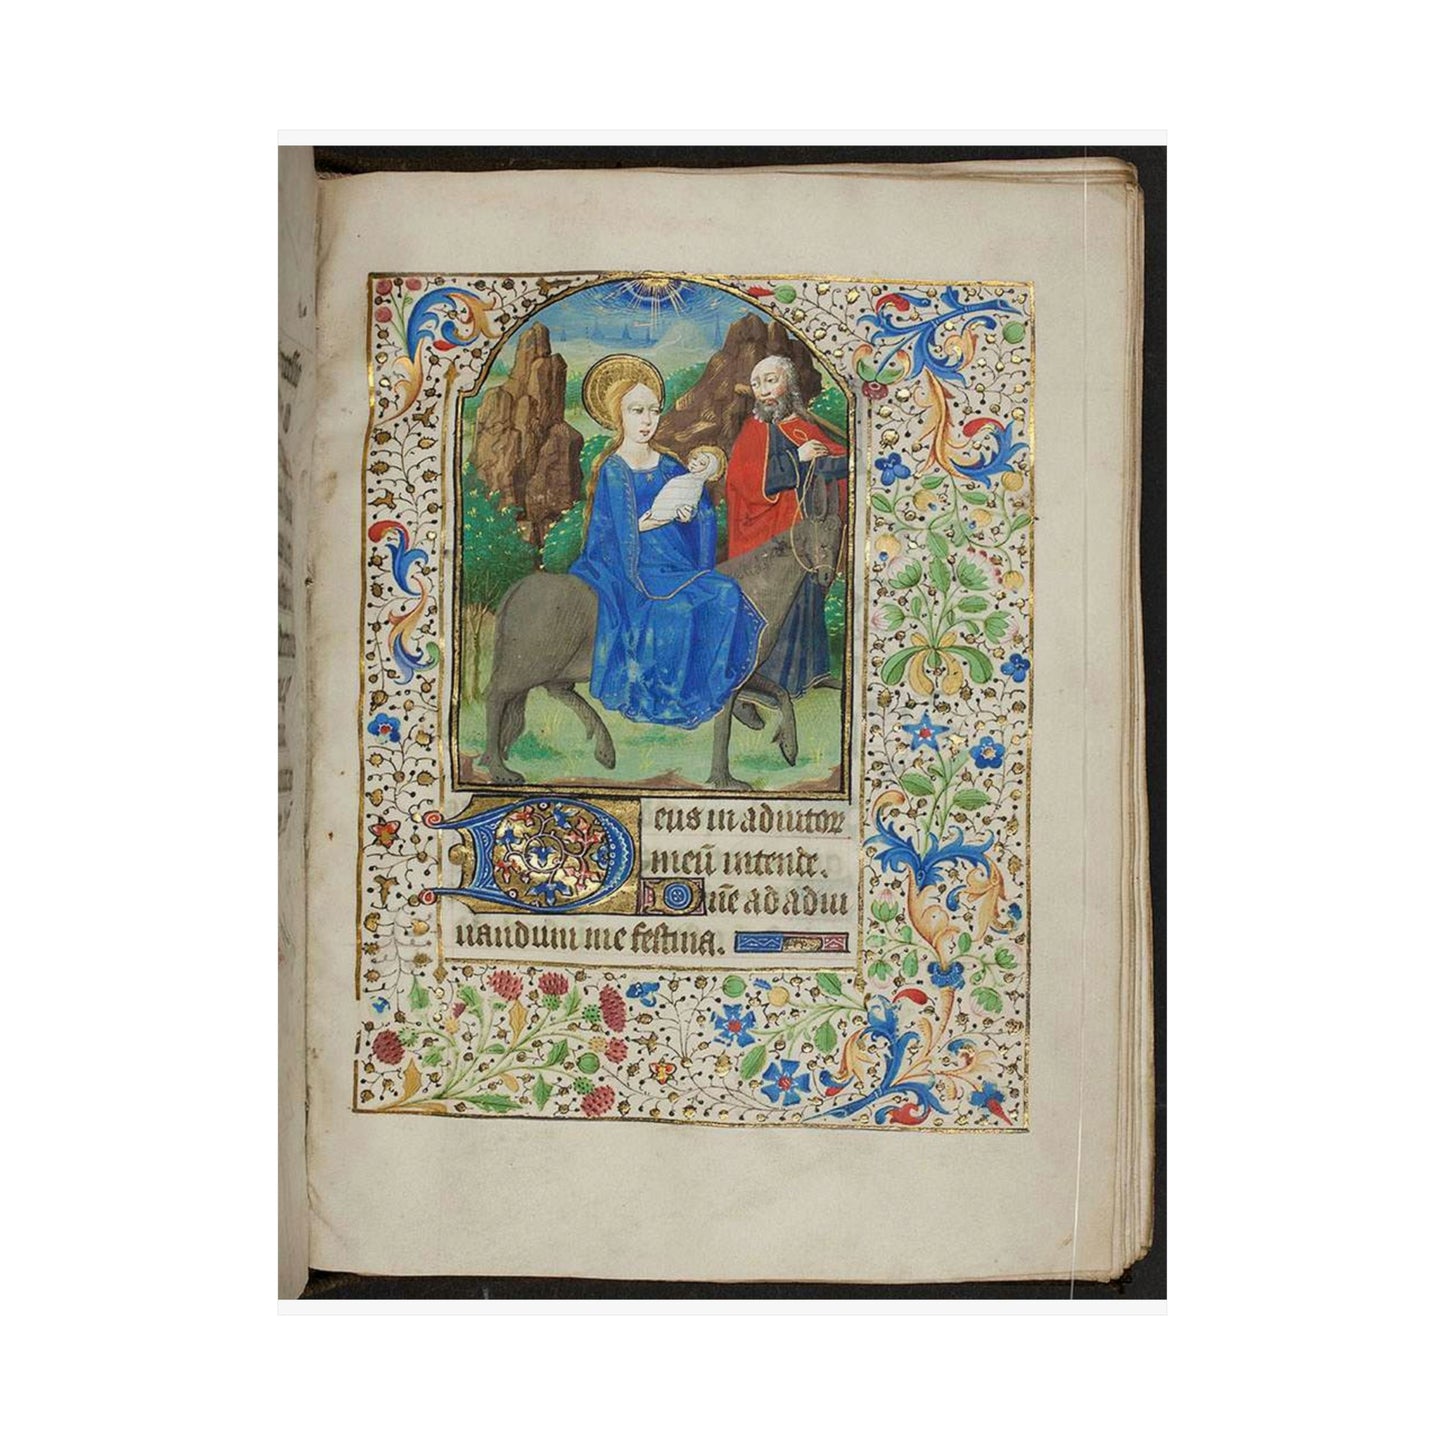 Deus in adiutoꝝ
meū intende.
Dñe ad adiu
uandum me festina.